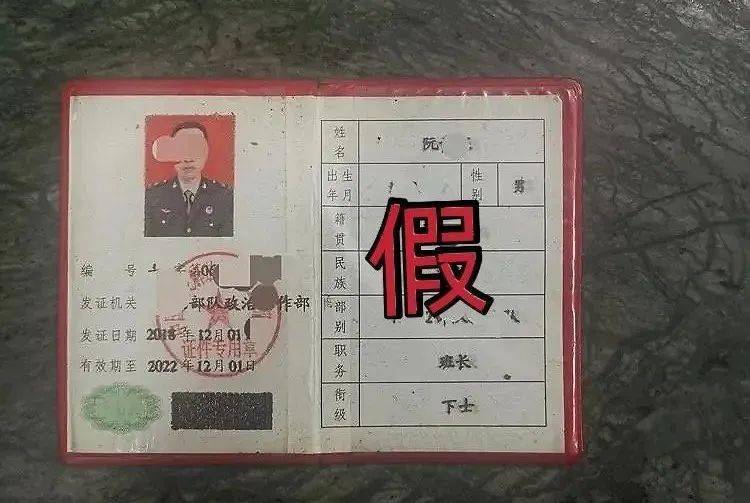 编 号
发证机关 部队政治 作部
发证日期 2018 年 12 月 01
有效期至 2022 年 12 月 01 日
证件专用章
姓名 阮
出生年月 性别 男
籍贯
民族
部别
职务 班长
衔级 下士
假